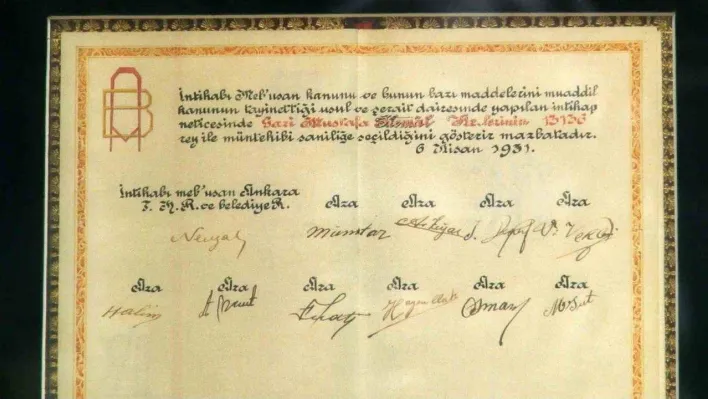 İntihabı Meb'usan kanunu ve bunun bazı maddelerini muaddil
kanunun tayinettiği usul ve şerait dairesinde yapılan intihap
neticesinde Gazi Mustafa Kemâl Hz.lerinin 13136
rey ile müntehibi saniliğe seçildiğini gösterir mazbatadır.
6 Nisan 1931.
İntihabı meb'usan Ankara
T. H. R. ve belediye R. Aza Aza Aza Aza
Nevzat Mümtaz
Aza Aza Aza Aza Aza Aza
Halim Osman